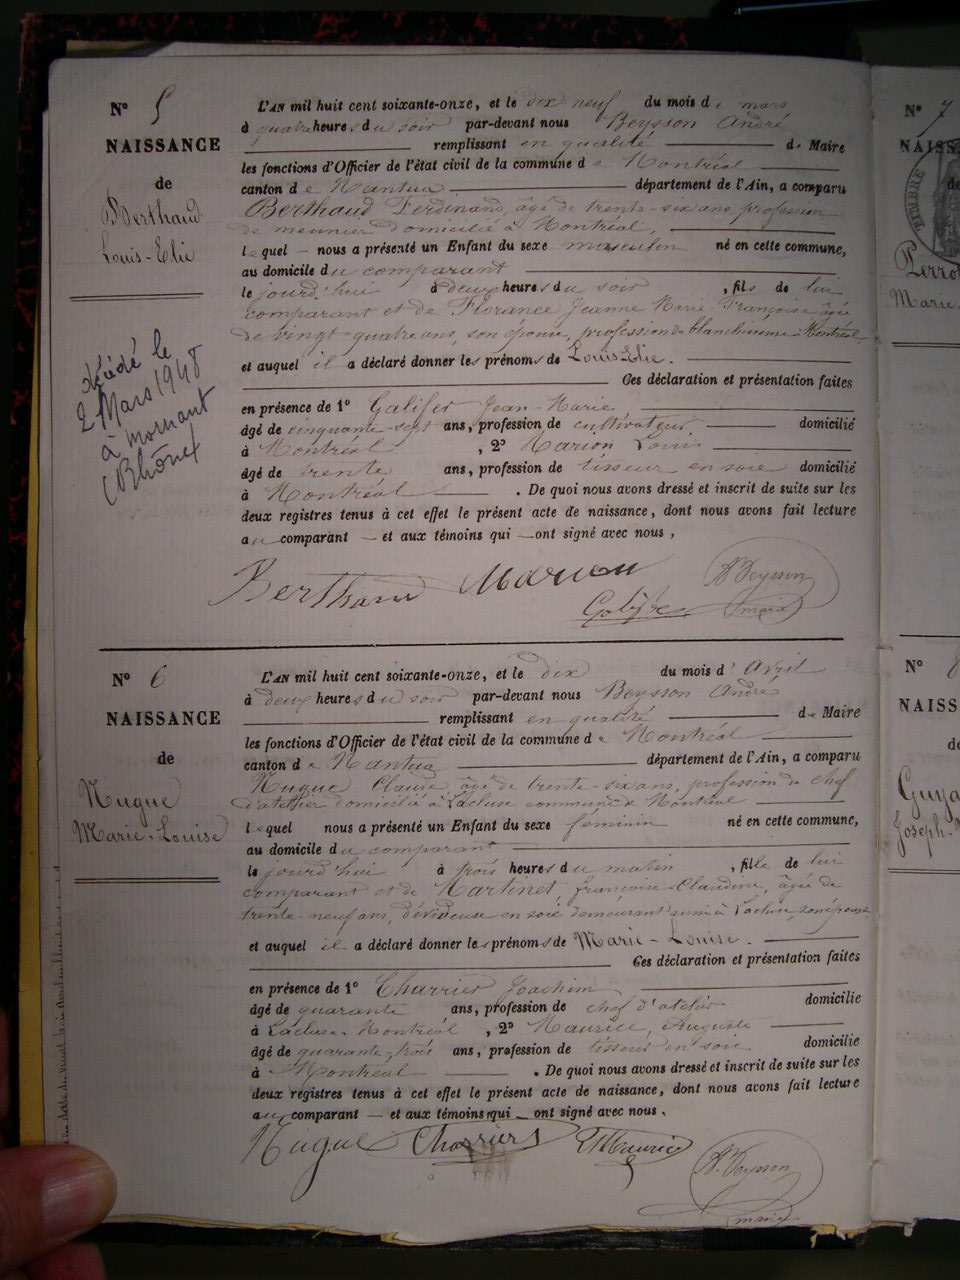 N° 5
NAISSANCE
de
Berthaud
Louis-Elie
décédé le
2 Mars 1948
à Mornant
(Rhône)
L'AN mil huit cent soixante-onze, et le dix neuf du mois de mars
à quatre heures du soir par-devant nous Beysson André
remplissant en qualité de Maire
les fonctions d'Officier de l'état civil de la commune de Montréal
canton de Nantua département de l'Ain, a comparu
Berthaud Ferdinand, âgé de trente-six ans, profession
de meunier domicilié à Montréal,
lequel nous a présenté un Enfant du sexe masculin né en cette commune,
au domicile du comparant
le jourd'hui à deux heures du soir, fils de lui
comparant et de Florance Jeanne Marie Françoise âgée
de vingt-quatre ans, son épouse, profession de blanchisseuse à Montréal
et auquel il a déclaré donner les prénoms de Louis Elie.
Ces déclaration et présentation faites
en présence de 1° Galifer Jean-Marie
âgé de cinquante-sept ans, profession de cultivateur domicilié
à Montréal, 2° Marion Louis
âgé de trente ans, profession de tisseur en soie domicilié
à Montréal. De quoi nous avons dressé et inscrit de suite sur les
deux registres tenus à cet effet le présent acte de naissance, dont nous avons fait lecture
au comparant et aux témoins qui ont signé avec nous,
Berthaud Marion A Beysson
Galifer maire
N° 6
NAISSANCE
de
Nugue
Marie-Louise
L'AN mil huit cent soixante-onze, et le dix du mois d'Avril
à deux heures du soir par-devant nous Beysson André
remplissant en qualité de Maire
les fonctions d'Officier de l'état civil de la commune de Montréal
canton de Nantua département de l'Ain, a comparu
Nugue Claude, âgé de trente-six ans, profession de chef
d'atelier domicilié à Lacluse commune de Montréal
lequel nous a présenté un Enfant du sexe féminin né en cette commune,
au domicile du comparant
le jourd'hui à trois heures du matin, fille de lui
comparant et de Martinet, françoise-Claudine, âgée de
trente-neuf ans, dévideuse en soie demeurant aussi à Lacluse, son épouse
et auquel il a déclaré donner les prénoms de Marie-Louise.
Ces déclaration et présentation faites
en présence de 1° Charrier Joachim
âgé de quarante ans, profession de chef d'atelier domicilié
à Lacluse-Montréal, 2° Maurice, Auguste
âgé de quarante-trois ans, profession de tisseur en soie domicilié
à Montréal. De quoi nous avons dressé et inscrit de suite sur les
deux registres tenus à cet effet le présent acte de naissance, dont nous avons fait lecture
au comparant et aux témoins qui ont signé avec nous.
Nugue Charriers Maurice A. Beysson
maire
N° 7
TIMBRE
Marie
N°
NAISS
Guya
Joseph-